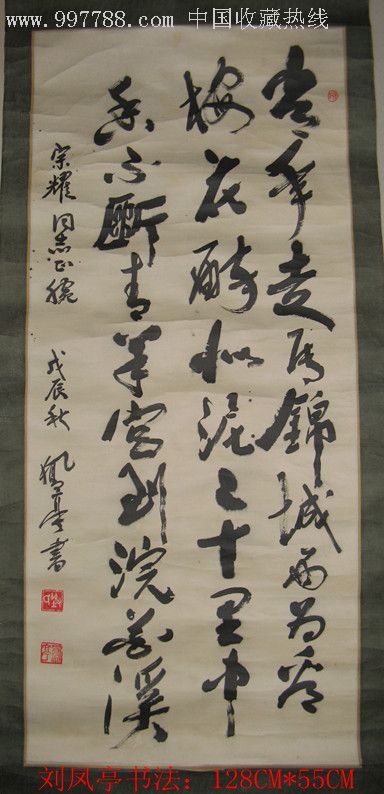 www.997788.com 中国收藏热线
当年走马錦城西为
梅花醉似泥二十里中
香不斷青羊宫到浣花溪
宗耀同志正腕
戊辰秋 鳳亭書
刘凤亭书法：128CM*55CM